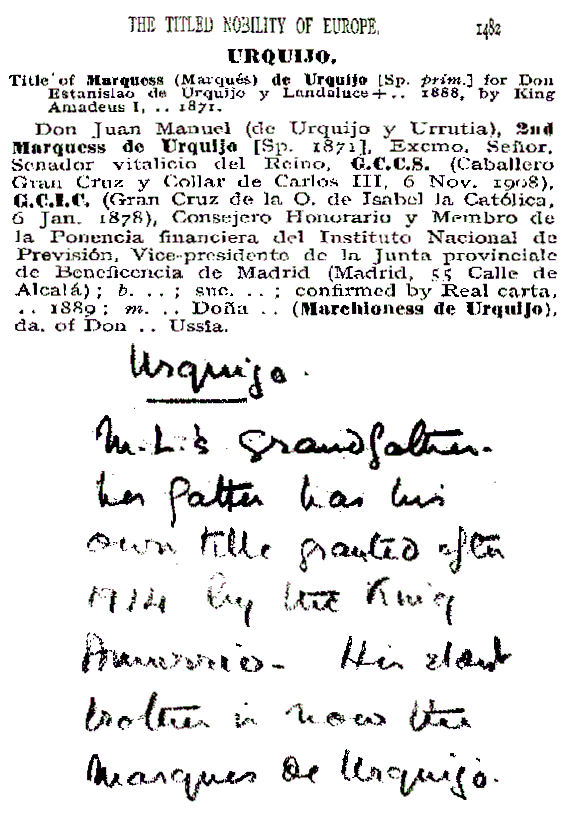 THE TITLED NOBILITY OF EUROPE. 1482
URQUIJO.
Title of Marquess (Marqués) de Urquijo [Sp. prim.] for Don
Estanislao de Urquijo y Landaluce + .. 1888, by King
Amadeus I, .. 1871.
Don Juan Manuel (de Urquijo y Urrutia), 2nd
Marquess de Urquijo [Sp. 1871], Excmo. Señor,
Senador vitalicio del Reino, G.C.C.S. (Caballero
Gran Cruz y Collar de Carlos III, 6 Nov. 1908),
G.C.I.C. (Gran Cruz de la O. de Isabel la Católica,
6 Jan. 1878), Consejero Honorario y Membro de
la Ponencia financiera del Instituto Nacional de
Previsión, Vice-presidente de la Junta provinciale
de Beneficencia de Madrid (Madrid, 55 Calle de
Alcalá) ; b. .. ; suc. .. ; confirmed by Real carta,
.. 1889 ; m. .. Doña .. (Marchioness de Urquijo),
da. of Don .. Ussia.
Urquijo.
M.L.'s grandfather.
her father has his
own title granted after
1914 by the King
His eldest
brother is now the
Marques de Urquijo.